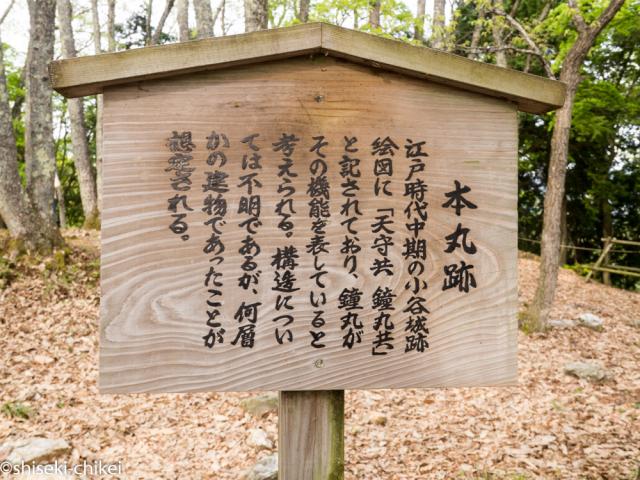 本丸跡
江戸時代中期の小谷城跡
絵図に「天守共 鐘丸共」
と記されており、鐘丸が
その機能を表していると
考えられる。構造につい
ては不明であるが、何層
かの建物であったことが
想定される。
©shiseki-chikei